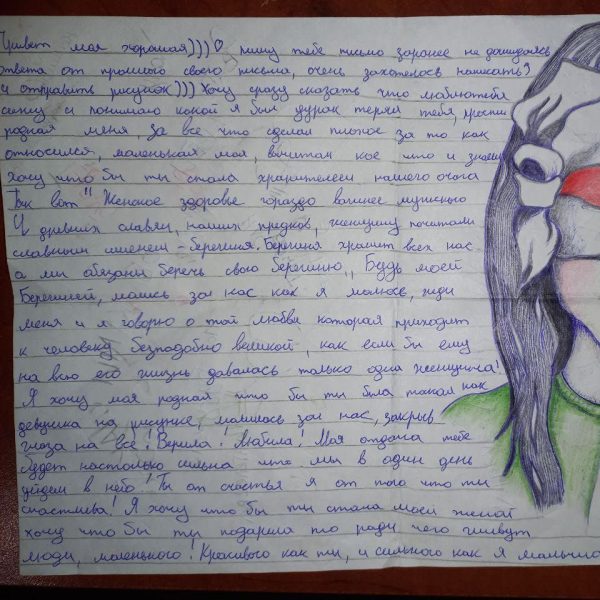 Привет моя хорошая))) О пишу тебе письмо заранее не дождавшись
ответа от прошлого своего письма, очень захотелось написать,
и отправить рисунок))) Хочу сразу сказать что люблю тебя
сижу и понимаю какой я был дурак теряя тебя, прости
родная меня, за все что сделал плохое за то как
относился, маленькая моя, вычитал кое что и знаешь
хочу что бы ты стала хранителем нашего очага
Так вот " Женское здоровье гораздо важнее мужского
У древних славян, наших предков, женщину почитали
славным именем - берегиня. Берегиня хранит всех нас
а мы обязаны беречь свою берегиню,, Будь моей
Берегиней, молись за нас как я молюсь, жди
меня и я говорю о той любви которая приходит
к человеку бесподобно великой, как если бы ему
на всю его жизнь давалась только одна женщина!
Я хочу моя родная что бы ты была такая как
девушка на рисунке, молилась за нас, закрыв
глаза на все! Верила! Любила! Моя отдача тебе
будет настолько сильна что мы в один день
уйдем в небо! Ты от счастья я от того что ты
счастлива! Я хочу что бы ты стала моей женой
хочу что бы ты подарила то ради чего живут
люди, маленького! Красивого как ты, и сильного как я